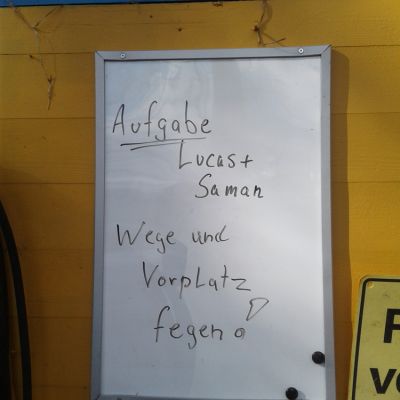 Aufgabe
Lucas +
Saman
Wege und
Vorplatz
fegen!